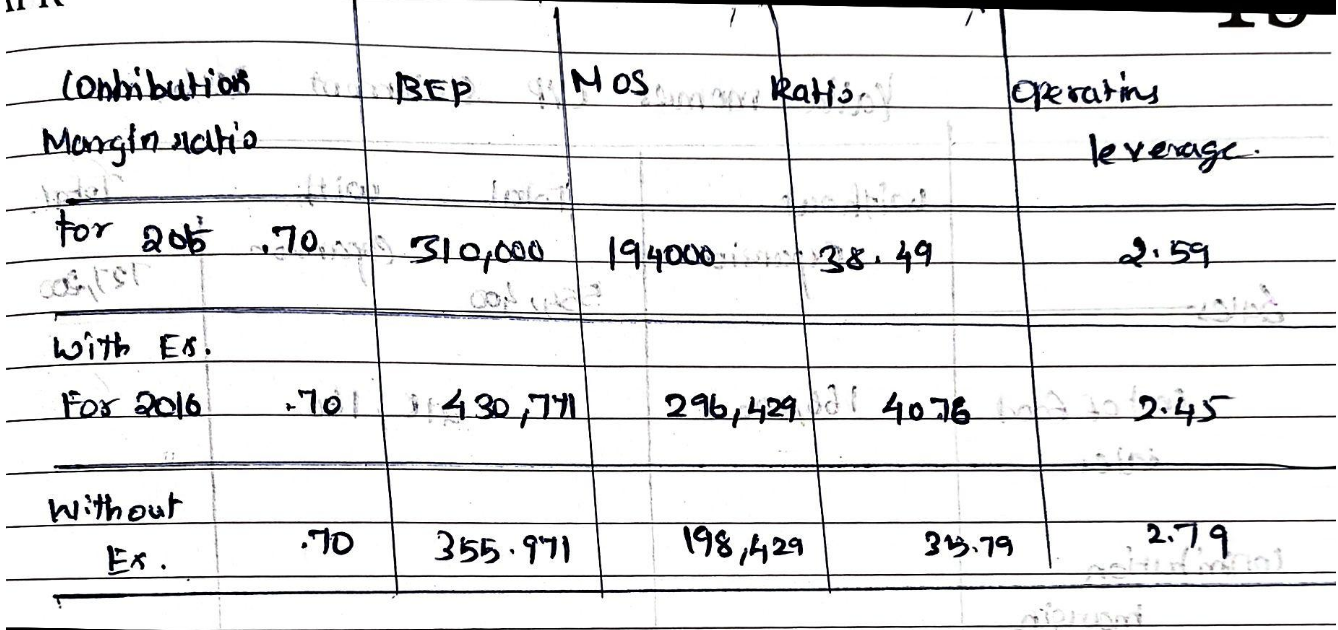 Contribution BEP MOS Ratio Operating
Margin ratio leverage.
For 2015 .70 310,000 194000 38.49 2.59
With Ex.
For 2016 .70 430,771 296,429 4076 2.45
Without
Ex. .70 355.971 198,429 2.79